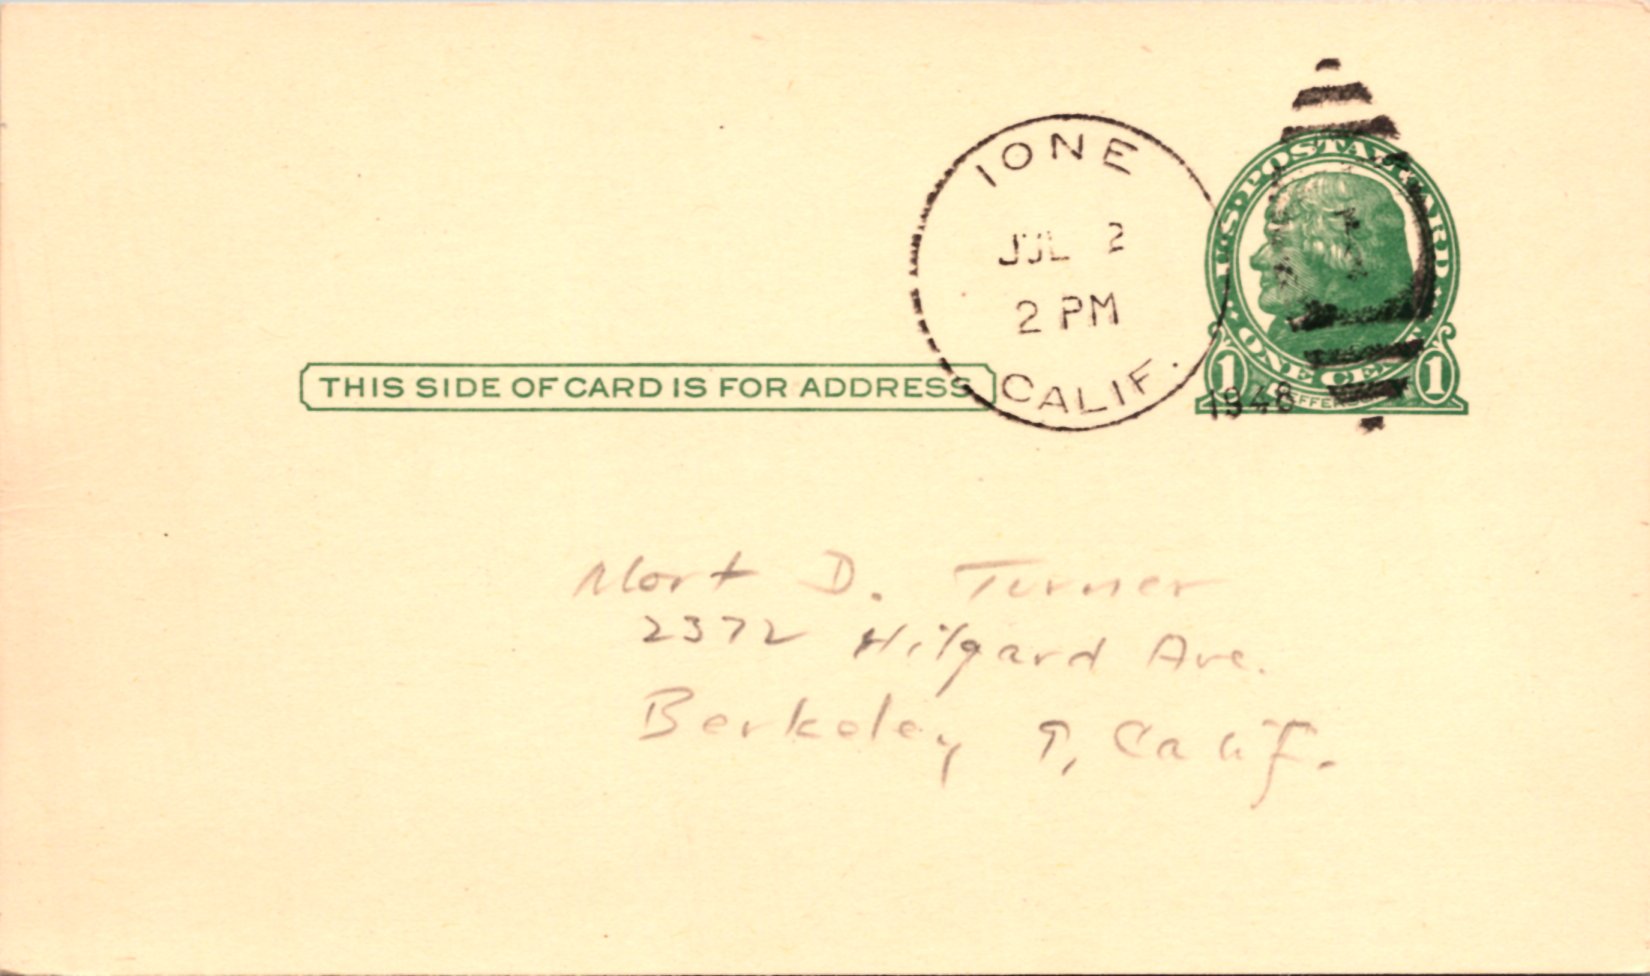 IONE
JUL 2
2 PM
CALIF.
1948
U.S. POSTAL CARD
ONE CENT
1 1
THIS SIDE OF CARD IS FOR ADDRESS
Mort D. Turner
2372 Hilgard Ave.
Berkeley 9, Calif.